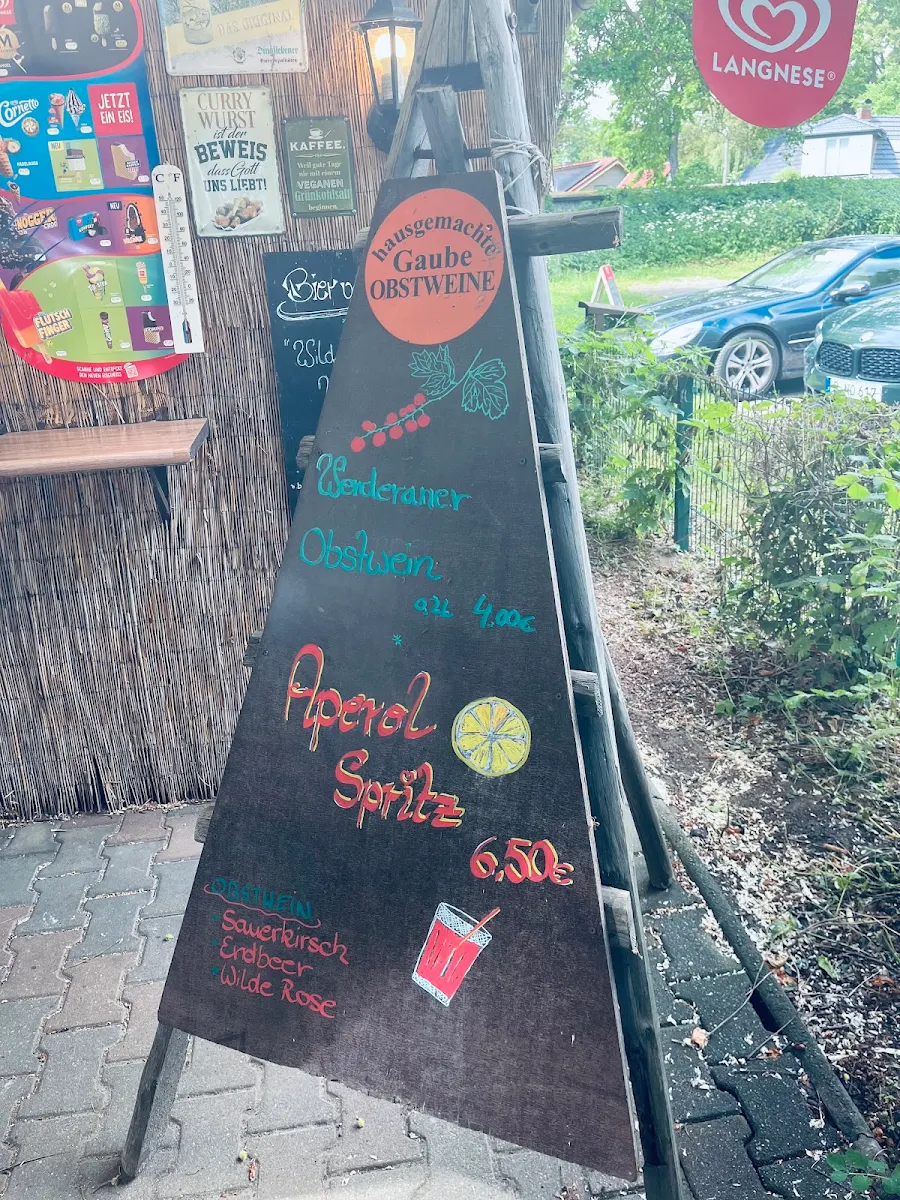 Cornetto
JETZT
EIN EIS!
NEU
NOGGER
NEU
FLUTSCH
FINGER
DAS ORIGINAL
CURRY
WURST
ist der
BEWEIS
dass Gott
UNS LIEBT!
KAFFEE
Weil gute Tage
nie mit einem
VEGANEN
Grünkohlsaft
beginnen.
C F
LANGNESE®
Bier v
"Wild
hausgemachte
Gaube
OBSTWEINE
Werderaner
Obstwein
0,2L 4,00€
*
Aperol
Spritz
6,50€
OBSTWEIN
Sauerkirsch
Erdbeer
Wilde Rose